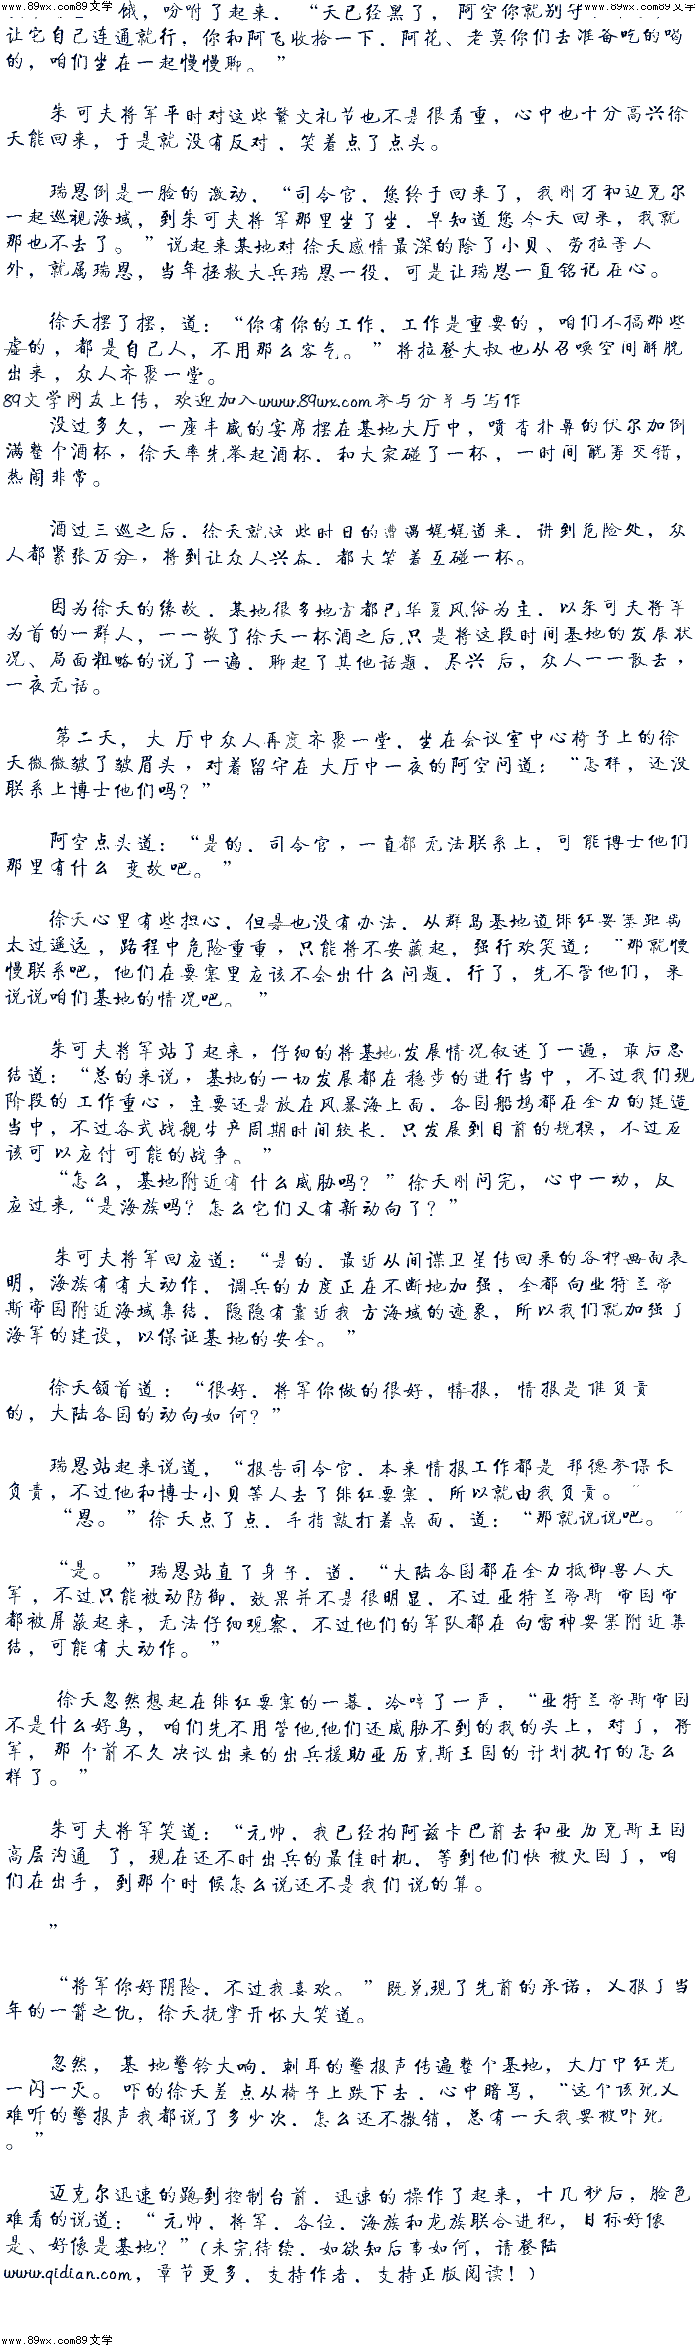 www.89wx.com89文学 www.89wx.com89文学
饿，吩咐了起来．“天已经黑了，阿空你就别守
让它自己连通就行，你和阿飞收拾一下．阿花、老莫你们去准备吃的喝
的，咱们坐在一起慢慢聊。”
朱可夫将军平时对这些繁文礼节也不是很看重，心中也十分高兴徐
天能回来，于是就没有反对．笑着点了点头。
瑞恩倒是一脸的激动．“司令官．您终于回来了，我刚才和迈克尔
一起巡视海域，到朱可夫将军那里坐了坐．早知道您今天回来，我就
那也不去了。”说起来基地对徐天感情最深的除了小贝、劳拉等人
外，就属瑞恩，当年拯救大兵瑞恩一役．可是让瑞恩一直铭记在心。
徐天摆了摆，道：“你有你的工作．工作是重要的，咱们不搞那些
虚的，都是自己人，不用那么客气。”将拉登大叔也从召唤空间解脱
出来，众人齐聚一堂。
89文学网友上传，欢迎加入www.89wx.com参与分享与写作
没过多久，一座丰盛的宴席摆在基地大厅中，喷香扑鼻的伏尔加倒
满整个酒杯，徐天率先举起酒杯．和大家碰了一杯，一时间觥筹交错，
热闹非常。
酒过三巡之后．徐天就这些时日的遭遇娓娓道来．讲到危险处，众
人都紧张万分，将到让众人兴奋．都大笑着互碰一杯。
因为徐天的缘故．基地很多地方都已华夏风俗为主．以朱可夫将军
为首的一群人，一一敬了徐天一杯酒之后，只是将这段时间基地的发展状
况、局面粗略的说了一遍．聊起了其他话题．尽兴后，众人一一散去，
一夜无话。
第二天，大厅中众人再度齐聚一堂．坐在会议室中心椅子上的徐
天微微皱了皱眉头，对着留守在大厅中一夜的阿空问道：“怎样，还没
联系上博士他们吗？”
阿空点头道：“是的．司令官，一直都无法联系上，可能博士他们
那里有什么变故吧。”
徐天心里有些担心．但是也没有办法．从群岛基地道绯红要塞距离
太过遥远，路程中危险重重，只能将不安藏起．强行欢笑道：“那就慢
慢联系吧，他们在要塞里应该不会出什么问题．行了，先不管他们，来
说说咱们基地的情况吧。”
朱可夫将军站了起来，仔细的将基地发展情况叙述了一遍，最后总
结道：“总的来说，基地的一切发展都在稳步的进行当中，不过我们现
阶段的工作重心，主要还是放在风暴海上面．各国船坞都在全力的建造
当中，不过各式战舰生产周期时间较长．只发展到目前的规模，不过应
该可以应付可能的战争。”
“怎么，基地附近有什么威胁吗？”徐天刚问完，心中一动，反
应过来，“是海族吗？怎么它们又有新动向了？”
朱可夫将军回应道：“是的．最近从间谍卫星传回来的各种画面表
明，海族有有大动作．调兵的力度正在不断地加强，全都向亚特兰帝
斯帝国附近海域集结．隐隐有靠近我方海域的迹象，所以我们就加强了
海军的建设，以保证基地的安全。”
徐天颔首道：“很好．将军你做的很好，情报，情报是谁负责
的，大陆各国的动向如何？”
瑞恩站起来说道，“报告司令官．本来情报工作都是邦德参谋长
负责，不过他和博士小贝等人去了绯红要塞．所以就由我负责。”
“恩。”徐天点了点．手指敲打着桌面．道：“那就说说吧。”
“是。”瑞恩站直了身子．道．“大陆各国都在全力抵御兽人大
军，不过只能被动防御．效果并不是很明显．不过亚特兰帝斯帝国帝
都被屏蔽起来，无法仔细观察．不过他们的军队都在向雷神要塞附近集
结，可能有大动作。”
徐天忽然想起在绯红要塞的一幕．冷哼了一声，“亚特兰帝斯帝国
不是什么好鸟，咱们先不用管他，他们还威胁不到的我的头上，对了，将
军，那个前不久决议出来的出兵援助亚历克斯王国的计划执行的怎么
样了。”
朱可夫将军笑道：“元帅．我已经拍阿兹卡巴前去和亚历克斯王国
高层沟通了，现在还不时出兵的最佳时机．等到他们快被灭国了，咱
们在出手，到那个时候怎么说还不是我们说的算。
”
“将军你好阴险．不过我喜欢。”既兑现了先前的承诺，又报了当
年的一箭之仇，徐天抚掌开怀大笑道。
忽然，基地警铃大响．刺耳的警报声传遍整个基地，大厅中红光
一闪一灭。吓的徐天差点从椅子上跌下去．心中暗骂，“这个该死又
难听的警报声我都说了多少次．怎么还不撤销，总有一天我要被吓死
。”
迈克尔迅速的跑到控制台前．迅速的操作了起来，十几秒后，脸色
难看的说道：“元帅．将军．各位．海族和龙族联合进犯，目标好像
是、好像是基地？”(未完待续．如欲知后事如何，请登陆
www.qidian.com，章节更多．支持作者．支持正版阅读！)
www.89wx.com89文学 www.89wx.com89文学